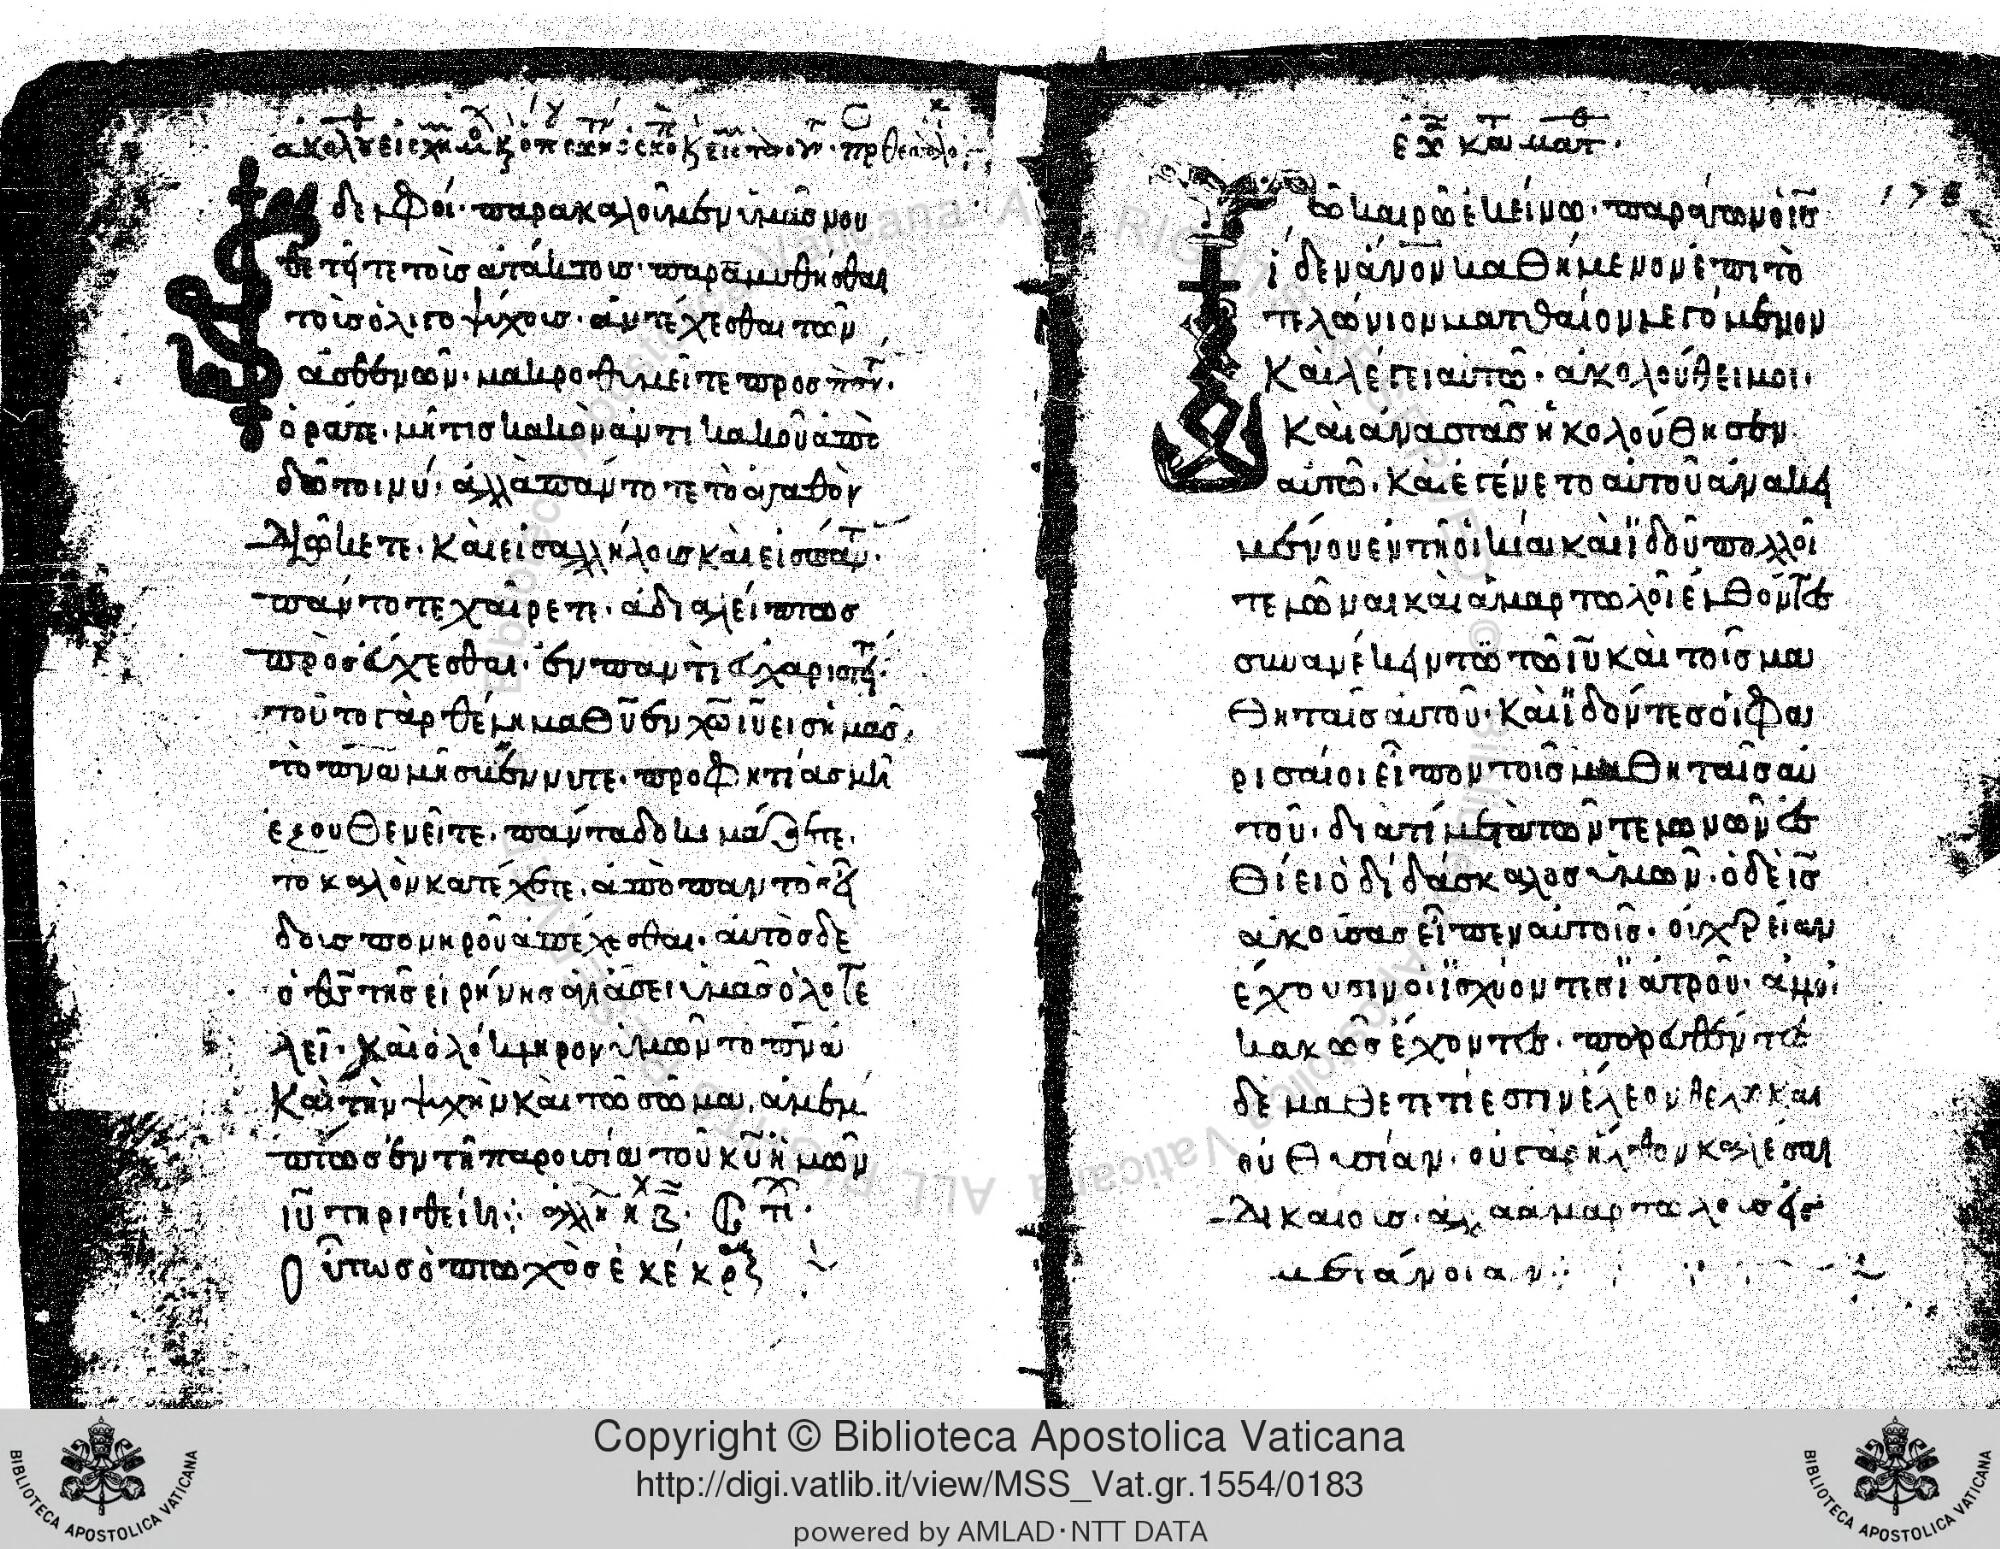 δελφοί· παρακαλοῦμεν ὑμᾶς νου
θετεῖτε τοῖς ἀτάκτοις· παραμυθῆσθαι
τοῖς ὀλιγοψύχοις· ἀντέχεσθαι τῶν
ἀσθενῶν· μακροθυμεῖτε προς
ὁρᾶτε· μή τις κακὸν ἀντὶ κακοῦ ἀπο
ἀλλὰ πάντοτε τὸ ἀγαθὸν
διώκετε· καὶ εἰς ἀλλήλοις καὶ εἰς παν·
πάντοτε χαίρετε· ἀδιαλείπτως
προσεύχεσθαι· ἐν παντὶ εὐχαριστεῖ·
τοῦτο γὰρ θέλημα Θῦ ἐν χῶ ιῦ εἰς ἡμᾶς·
τὸ πνα μὴ σβέννυτε· προφητίας μὴ
ἐξουθενεῖτε· πάντα δοκιμάζετε·
τὸ καλὸν κατέχετε· ἀπὸ παντὸς εἴ
δοις πονηροῦ ἀπέχεσθαι· αὐτὸς δε
ὁ θς τῆς εἰρήνης ἁγιάσει ὑμᾶς ὁλοτε
λεῖ· καὶ ὁλόκληρον ὑμῶν τὸ πνα
καὶ τὴν ψυχὴν καὶ τῶ σῶμα, ἀμέμ
πτως ἐν τῆ παρουσία τοῦ κῦ ἡμῶν
ιῦ τηριθείη
οὗτως ὁ πτωχὸς ἐκέκραξ
ἐκ κατ ματθ·
ῶ καιρῶ ἐκείνω· παράγων ὁ ις
ἰδεν ἀνον καθήμενον ἐπι τὸ
τελώνιον ματθαίον λεγόμενον
καὶ λέγει αυτῶ· ἀκολούθει μοι·
καὶ ἀναστὰς ἠκολούθησεν
αὐτῶ· καὶ ἐγένετο αὐτοῦ ἀνακει
μένου εν τῆ οἰκία καὶ ἰδοῦ πολλοὶ
τελῶναι καὶ ἁμαρτωλοὶ ἐλθόντες
συνανέκειντο τῶ ιῦ καὶ τοῖς μα
θηταῖς αυτοῦ· καὶ ἰδόντες οἱ φα
ρισαίοι εἶπον τοῖς μαθηταῖς αὐ
τοῦ· διατί μετὰ τῶν τελωνῶν ἐσ
θίει ὁ διδάσκαλος ὑμῶν· ὁ δὲ ις
ἀκούσας εἶπεν αὐτοῖς· οὐ χρείαν
ἔχουσιν οἱ ἰσχύοντες ἰατροῦ· ἀλλ οἱ
κακῶς ἔχοντες· πορευθέντες
δὲ μάθετε τί ἐστιν ἔλεον θέλω καὶ
οὐ θυσίαν· οὐ γὰρ ἦλθον καλέσαι
δικαίοις· ἀλλα ἁμαρτωλοις εἰς
μετάνοιαν
Copyright © Biblioteca Apostolica Vaticana
http://digi.vatlib.it/view/MSS_Vat.gr.1554/0183
powered by AMLAD·NTT DATA
BIBLIOTECA APOSTOLICA VATICANA
BIBLIOTECA APOSTOLICA VATICANA